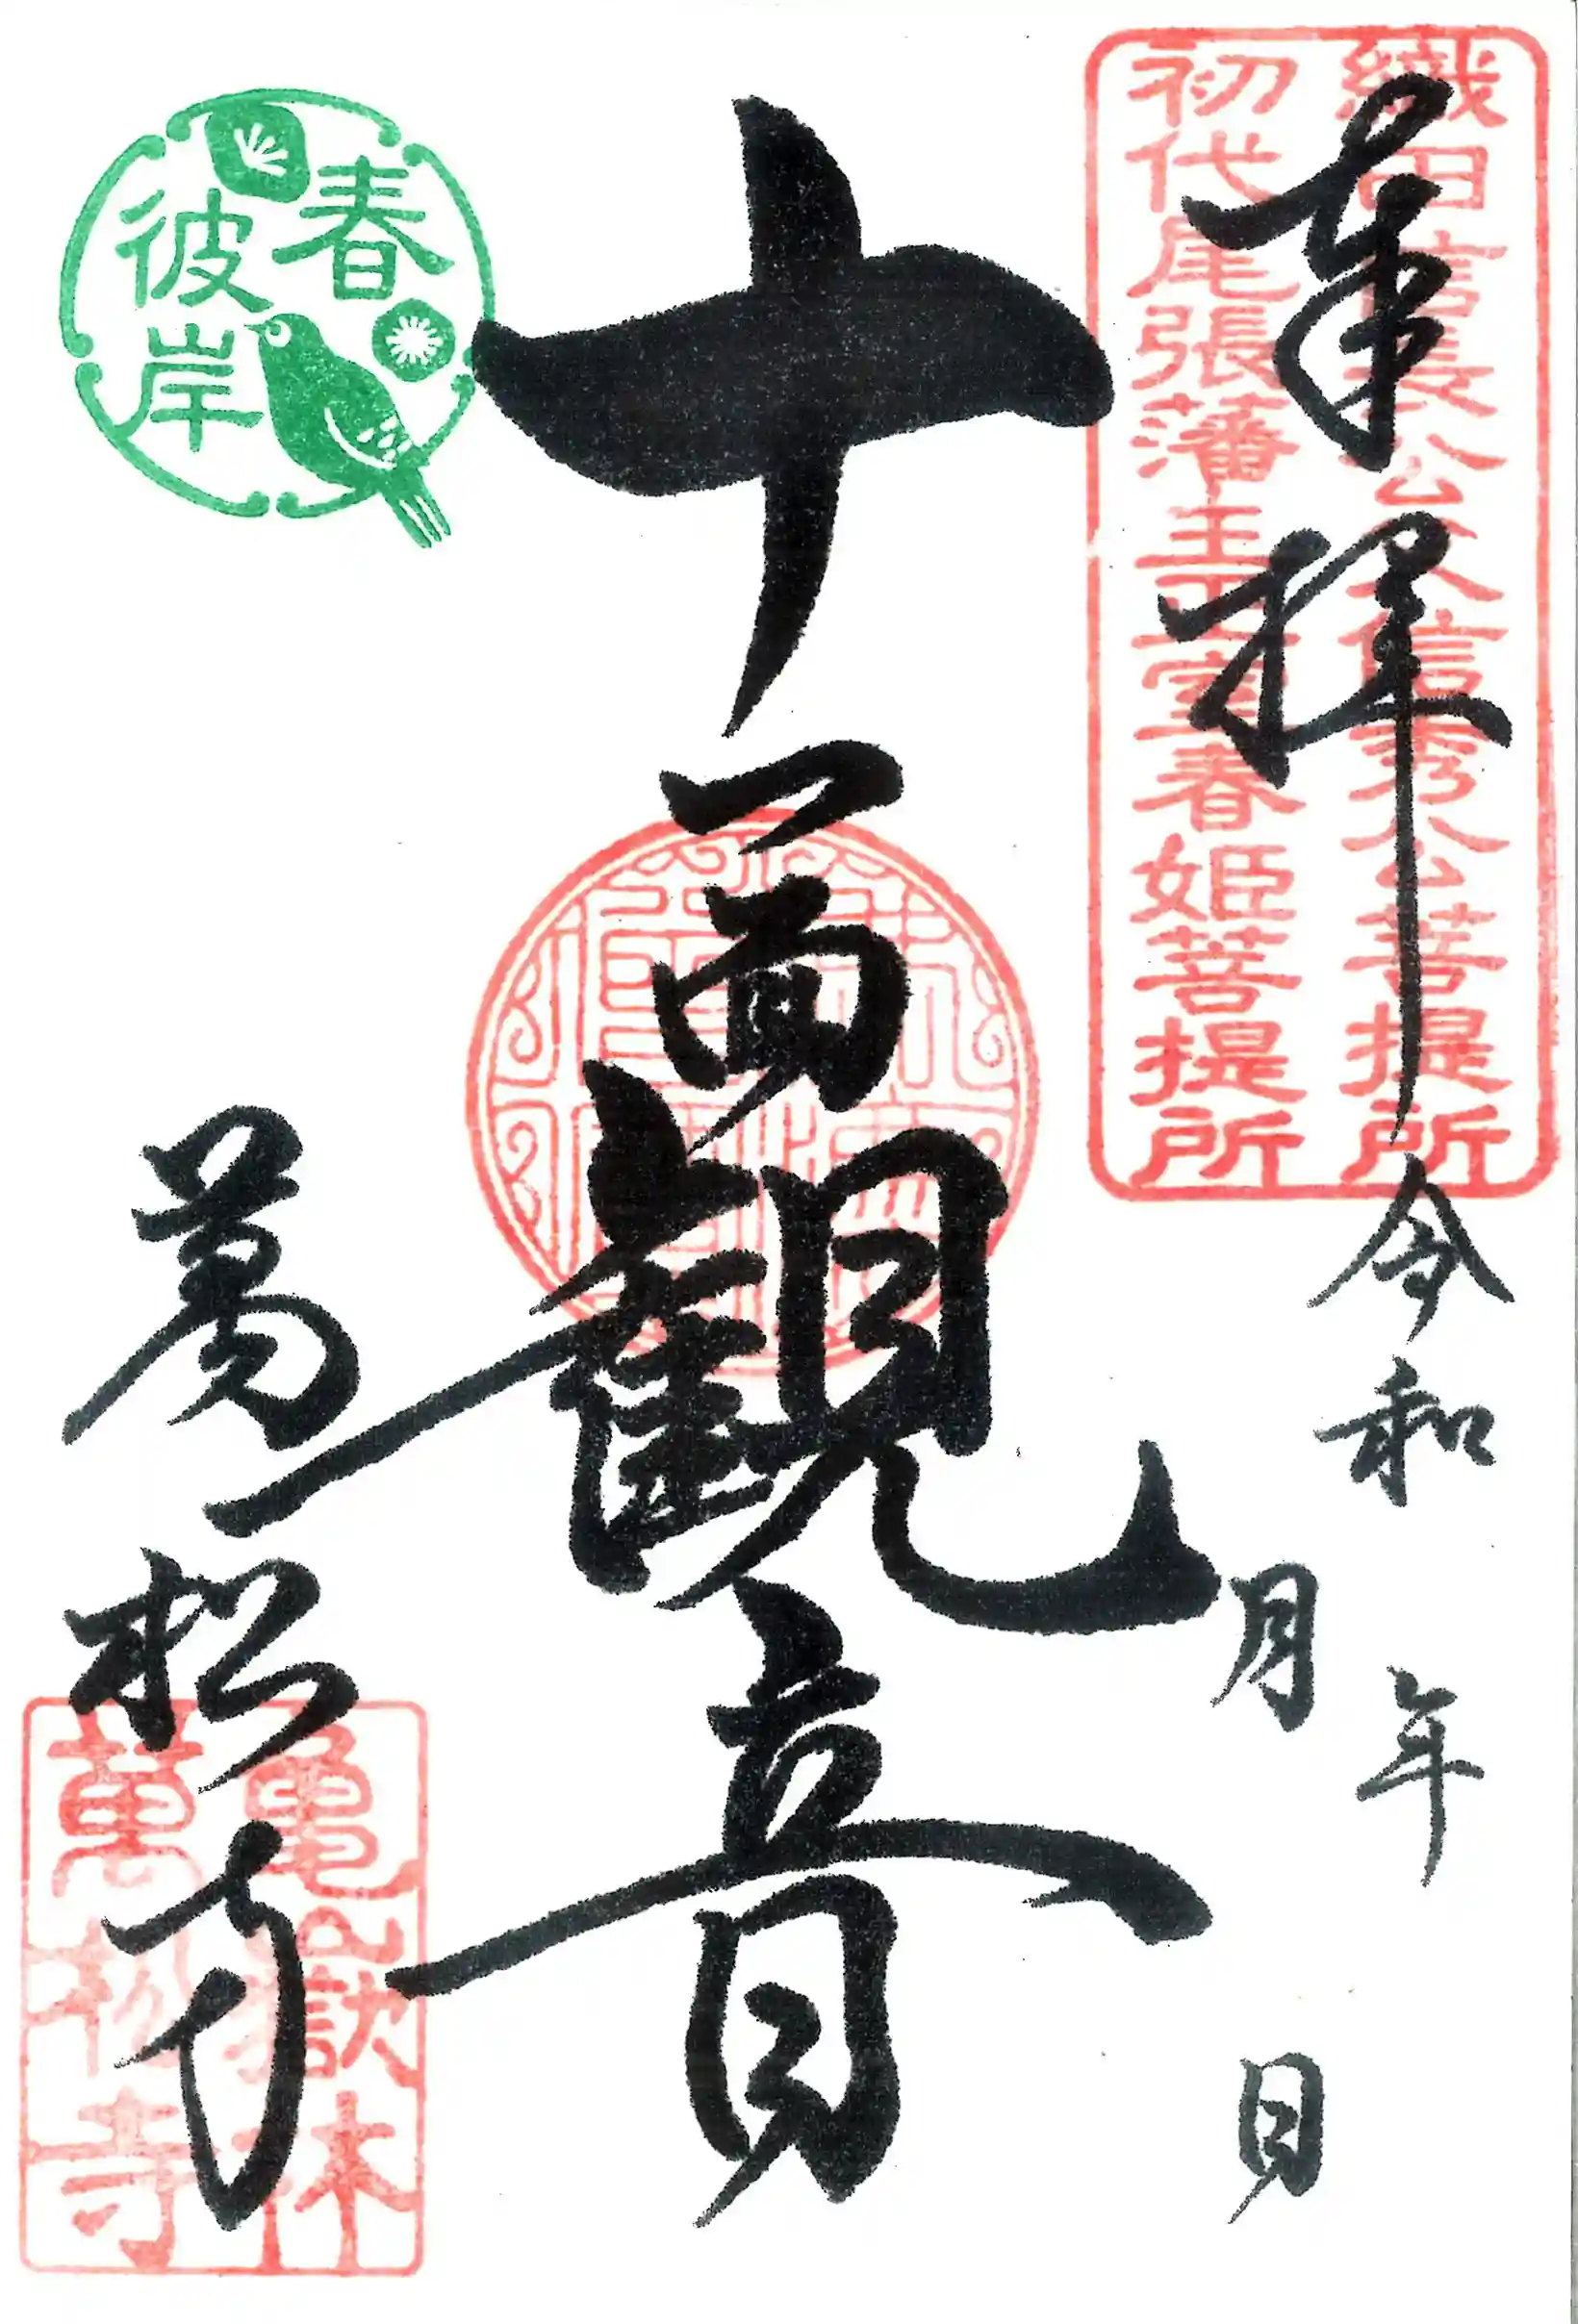 奉拝
令和 年
月 日
織田信長公父信秀公菩提所
初代尾張藩主正室春姫菩提所
十一面観音
春
彼岸
萬松寺
亀嶽林
萬松寺